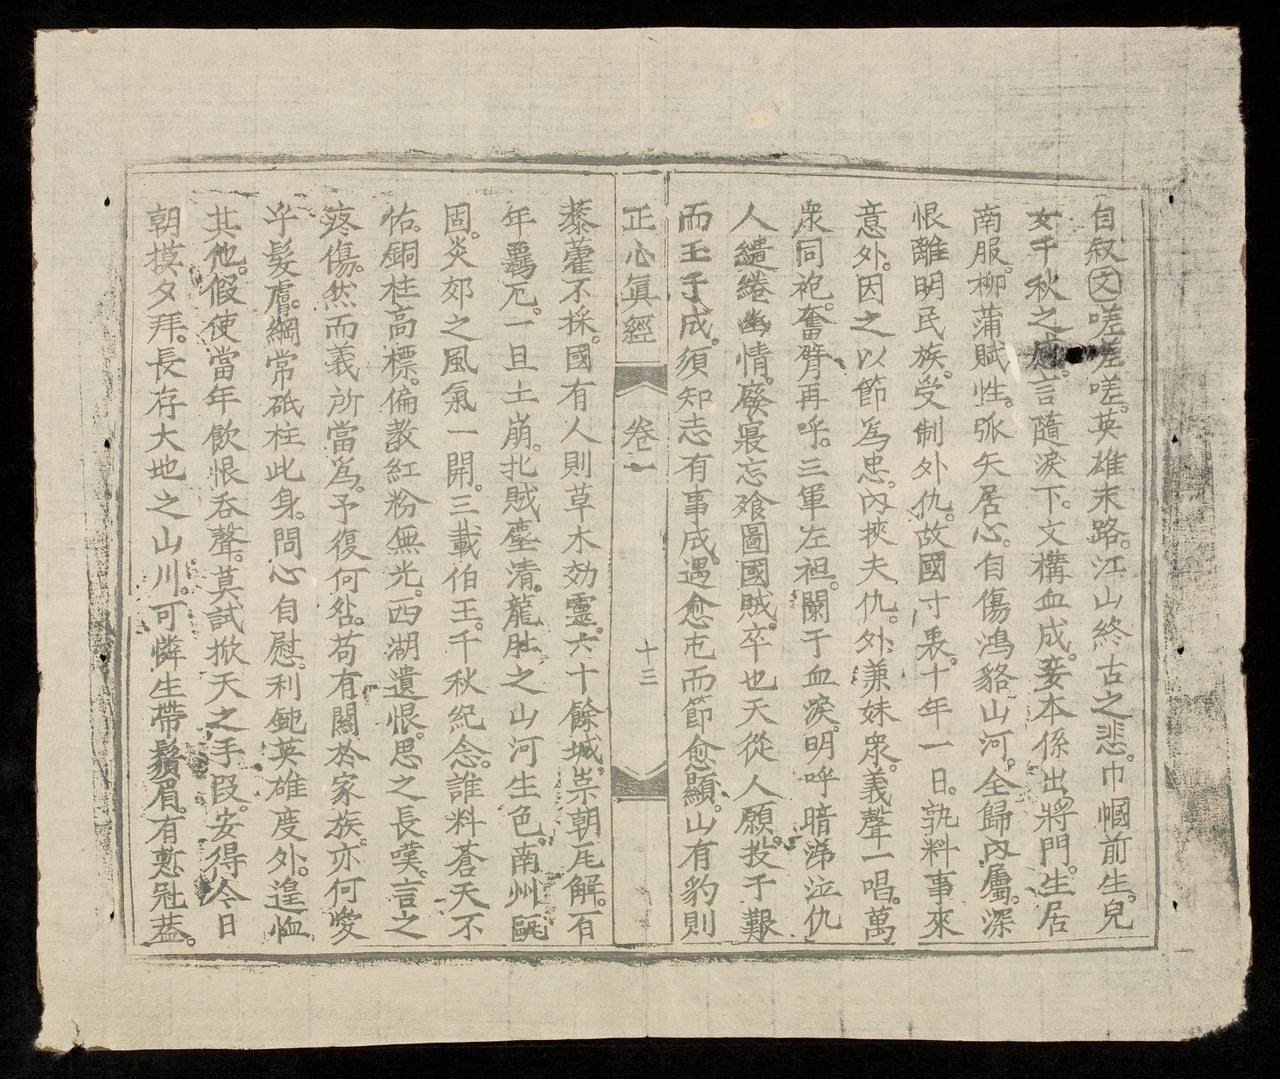 自叙文嗟嗟嗟。英雄末路。江山終古之悲。巾幗前生。兒
女千秋之感。言隨淚下。文構血成。妾本係出將門。生居
南服。柳蒲賦性。弧矢居心。自傷鴻貉山河。全歸內屬。深
恨離明民族。受制外仇。故國寸裏。十年一日。孰料事來
意外。因之以節爲忠。內挾夫仇。外兼妹衆。義聲一唱。萬
衆同袍。奮臂再呼。三軍左袒。闌于血淚。明呼暗涕泣仇
人繾綣幽情。廢寢忘飱圖國賊。卒也天從人願。投于艱
而王于成。須知志有事成。遇愈屯而節愈顯。山有豹則
正心眞經
卷一
十三
藜藿不採。國有人則草木効靈。六十餘城。崇朝瓦解。百
年羈厄。一旦土崩。北賊塵清。龍肚之山河生色。南州
固。炎郊之風氣一開。三載伯王。千秋紀念。誰料蒼天不
佑。銅柱高標。偏教紅粉無光。西湖遺恨。思之長嘆。言之
疼傷。然而義所當爲。予復何咎。苟有關於家族。亦何
乎髮膚。綱常砥柱此身。問心自慰。利鈍英雄度外。遑恤
其他。假使當年飲恨吞聲。莫試掀天之手段。安得今日
朝摸夕拜。長存大地之山川。可憐生帶鬚眉。有愆冠葢。